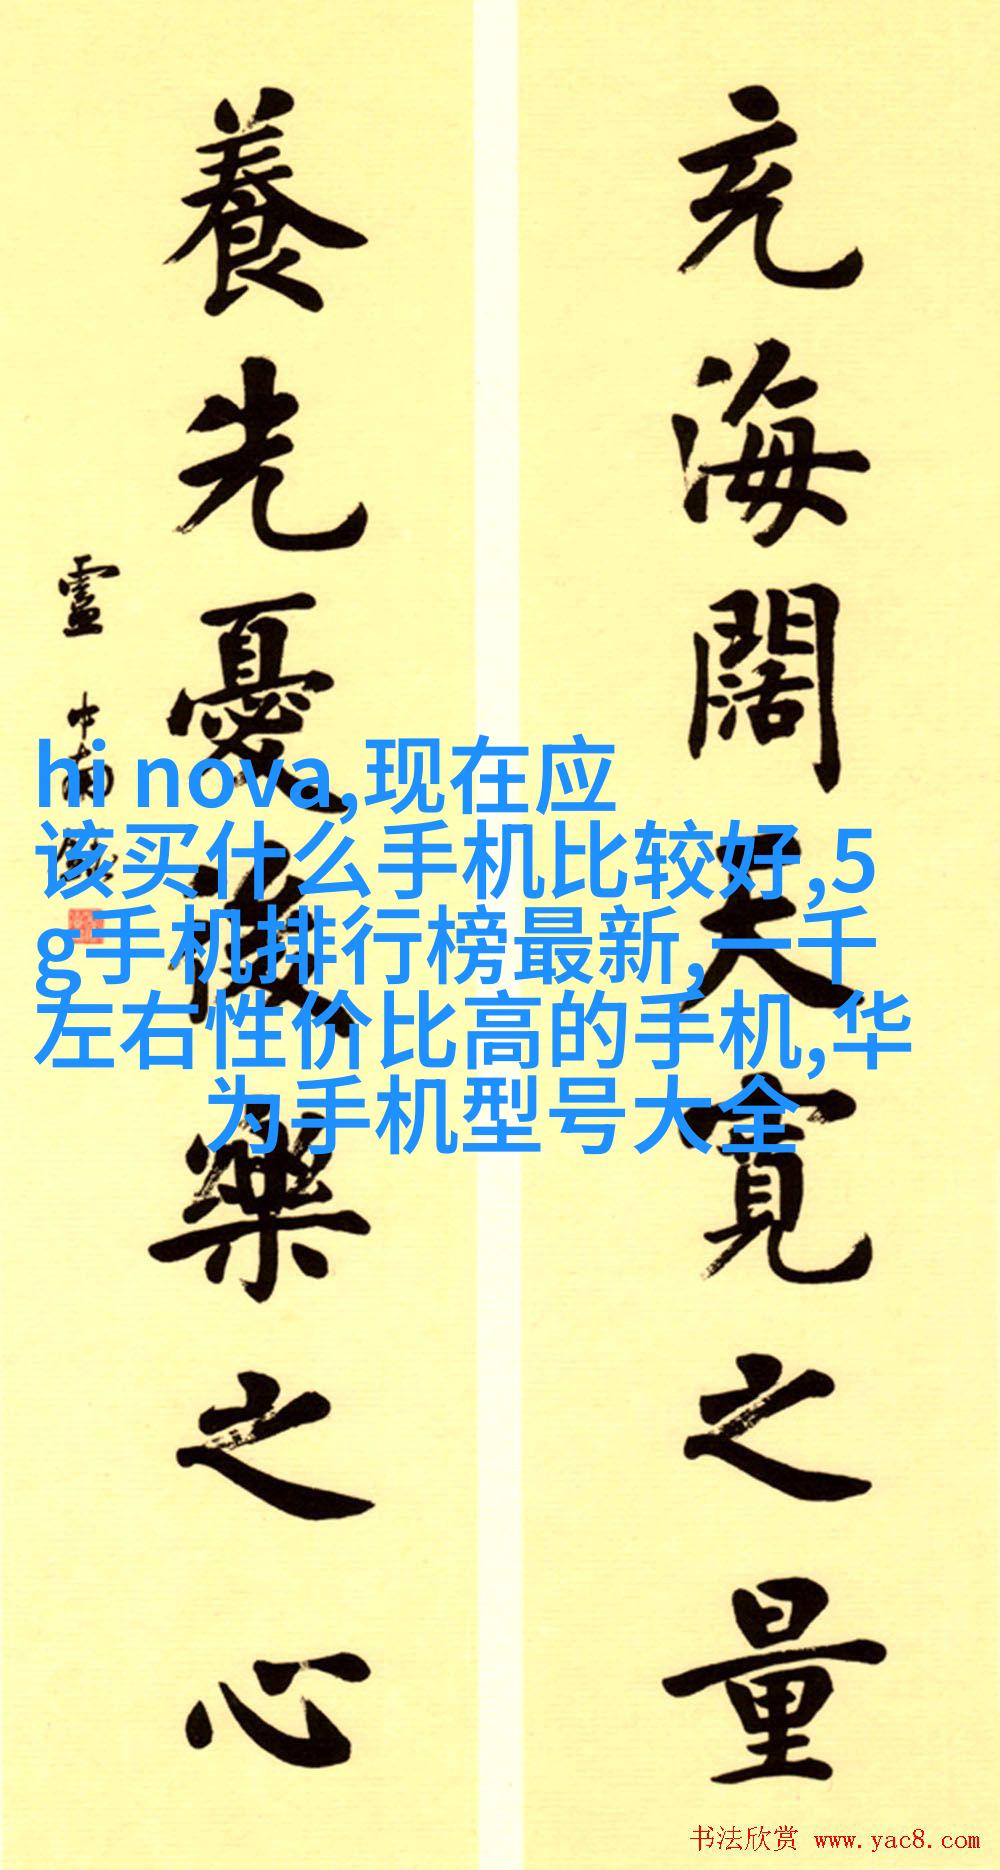 充海闊天寬之量
養先憂後樂之心
hi nova,现在应
该买什么手机比较好,5
g手机排行榜最新,一千
左右性价比高的手机,华
为手机型号大全
书法欣赏 www.yac8.com